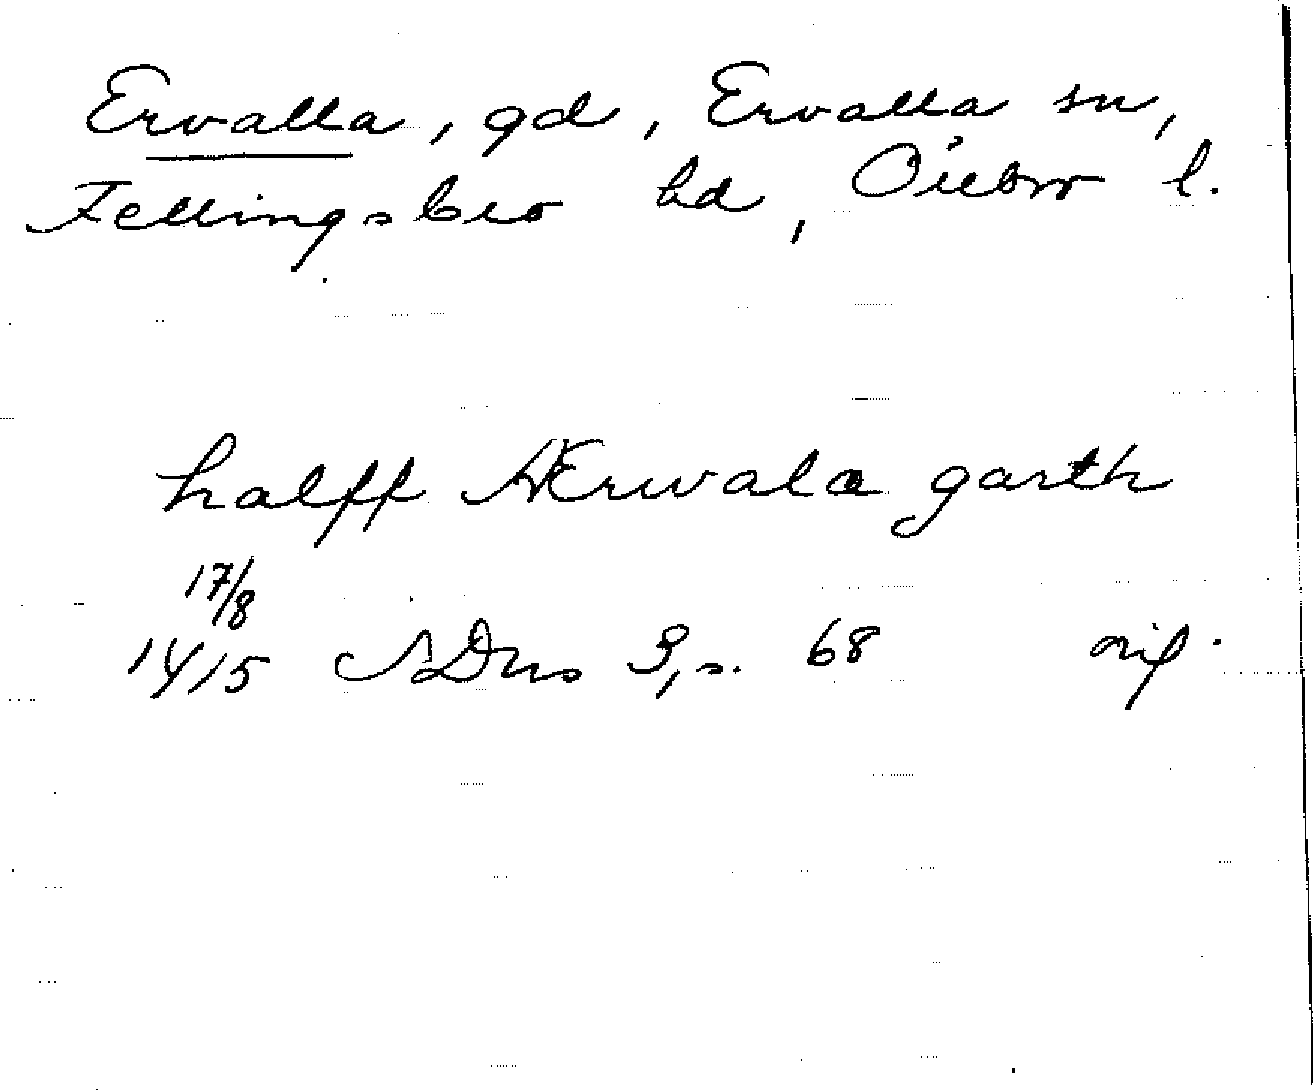 Ervalla, gd, Ervalla sn,
Fellingsbro hd, Örebro l.
halff Ærwala garth
17/8
1415 SDns 3, s. 68 orig.